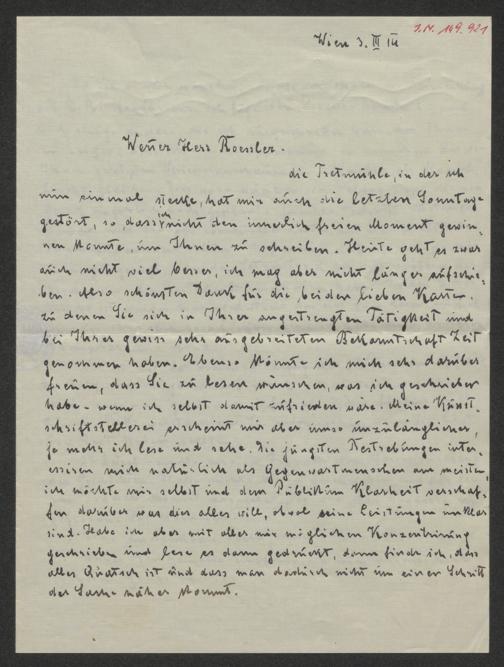 J.N. 149.921
Wien 3. III 14
Werter Herr Roessler.
die Tretmühle, in der ich
nun einmal stecke, hat mir auch die letzten Sonntage
gestört, so dass ich nicht den innerlich freien Moment gewin-
nen konnte, um Ihnen zu schreiben. Heute geht es zwar
auch nicht viel besser, ich mag aber nicht länger aufschie-
ben. Also schönsten Dank für die beiden lieben Karten,
zu denen Sie sich in Ihrer angestrengten Tätigkeit und
bei Ihrer gewiss sehr ausgebreiteten Bekanntschaft Zeit
genommen haben. Ebenso könnte ich mich sehr darüber
freuen, dass Sie zu lesen wünschen, was ich geschrieben
habe - wenn ich selbst damit zufrieden wäre. Meine Kunst-
schriftstellerei erscheint mir aber umso unzulänglicher,
je mehr ich lese und sehe. Die jüngsten Bestrebungen inter-
essieren mich natürlich als Gegenwartmenschen am meisten,
ich möchte mir selbst und dem Publikum Klarheit verschaf-
fen darüber was dies alles will, obwol seine Leistungen unklar
sind. Habe ich aber mit aller mir möglichen Konzentrierung
geschrieben und lese es dann gedruckt, dann finde ich, dass
alles Quatsch ist und dass man dadurch nicht um einen Schritt
der Sache näher kommt.